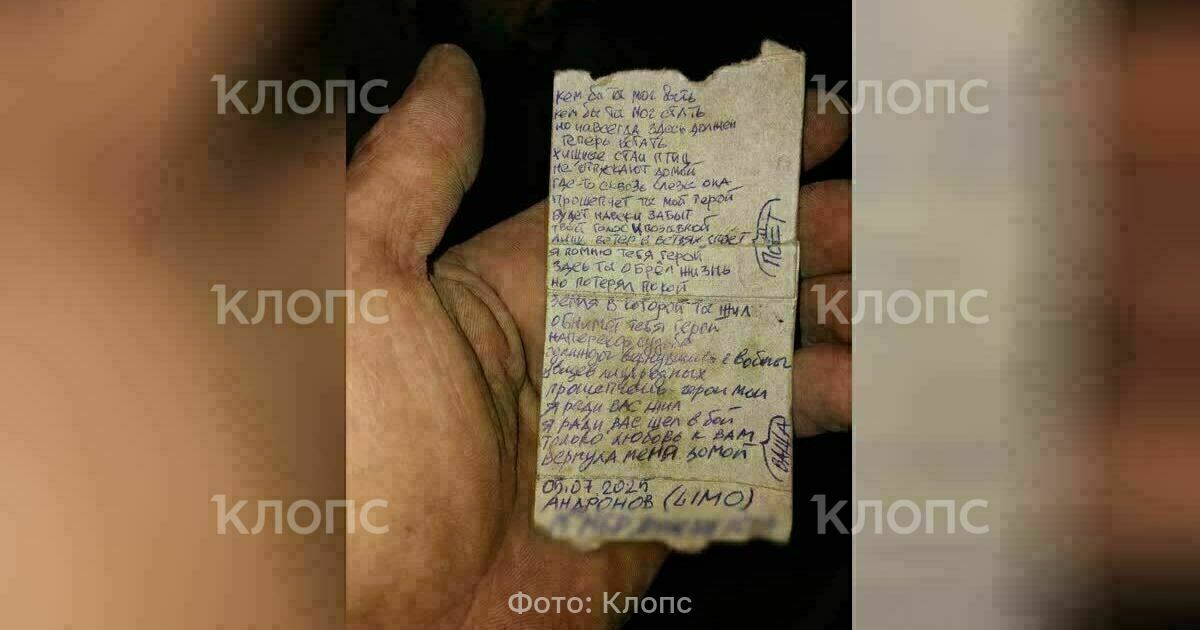 кем бы ты мог быть
кем бы ты мог стать
но навсегда здесь должен
теперь встать
хищные стаи птиц
не отпускают домой
где-то сквозь слезы она
прошепчет ты мой герой
будет навеки забыт
твой голос и позывной
лишь ветер в ветвях споёт
я помню тебя герой
здесь ты обрёл жизнь
но потерял покой
земля в которой ты жил
обнимет тебя герой
наперекор судьбе
с войны
увидев лица родных
прошепчешь герои мои
я ради вас жил
я ради вас шел в бой
только любовь к вам
вернула меня домой
ПОЁТ
ВАША
05.07.2025
АНДРОНОВ (LIMO)
клопс
клопс
клопс
клопс
клопс
клопс
Фото: Клопс